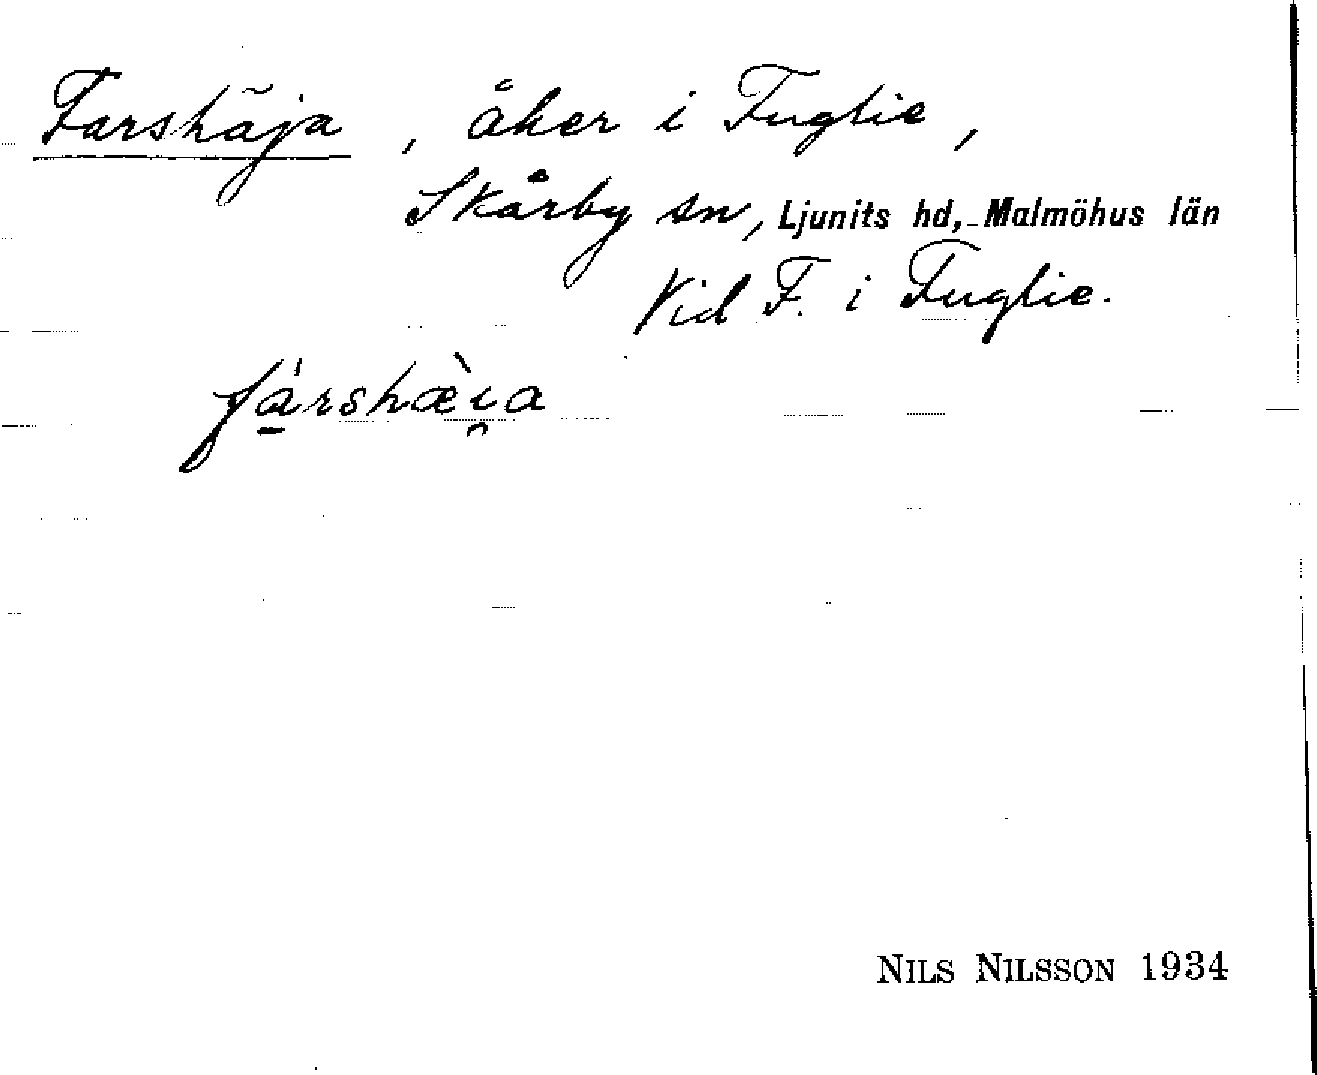 Farshäja, åker i Fuglie,
Skårby sn, Ljunits hd, Malmöhus län
Vid F. i Fuglie.
fa̱ʹrshæ̀i̯a
NILS NILSSON 1934